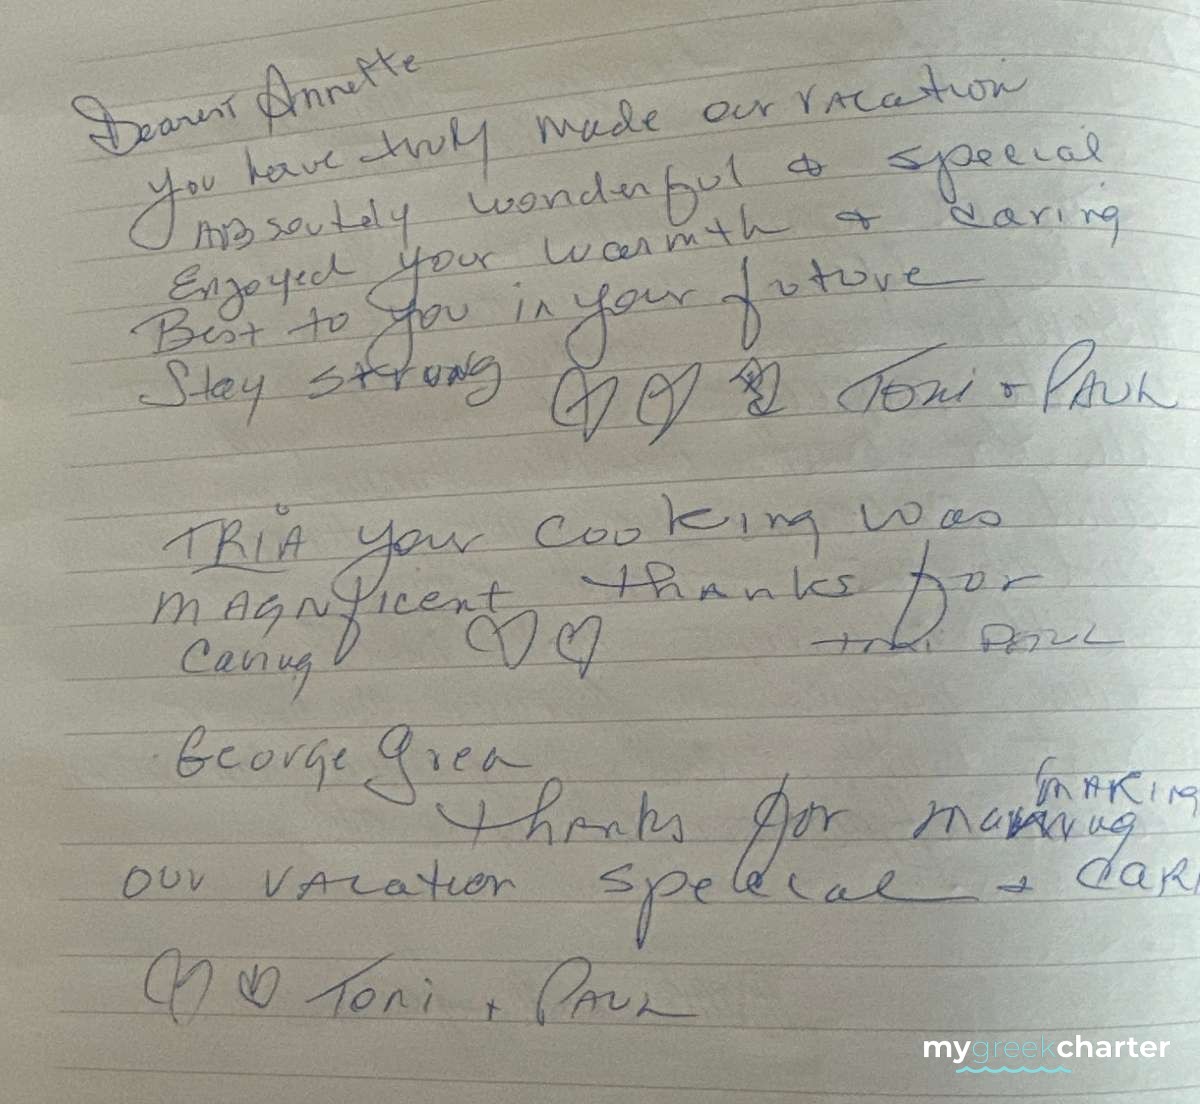 Dearest Annette
you have truly made our vacation
Absoutely wonderful & special
Enjoyed your warmth & caring
Best to you in your future
Stay strong ♡ ♡ Toni + Paul
TRIA your cooking was
magnificent thanks for
caring ♡ ♡ Toni Paul
George Grea
thanks for making
our vacation special + car
♡ ♡ Toni + Paul
mygreekcharter